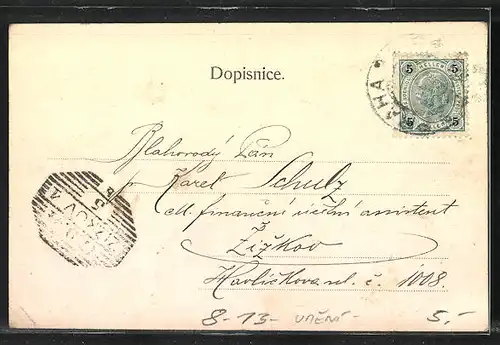 Dopisnice.
5 HELLER 5
5 5
PRAHA
Blahorodý Pán
p. Karel Schulz
c.k. finanční účetní assistent
Žižkov
Havlíčkova ul. č. 1008.
ŽIŽKOV
8-13- UMĚNÍ- 5,-